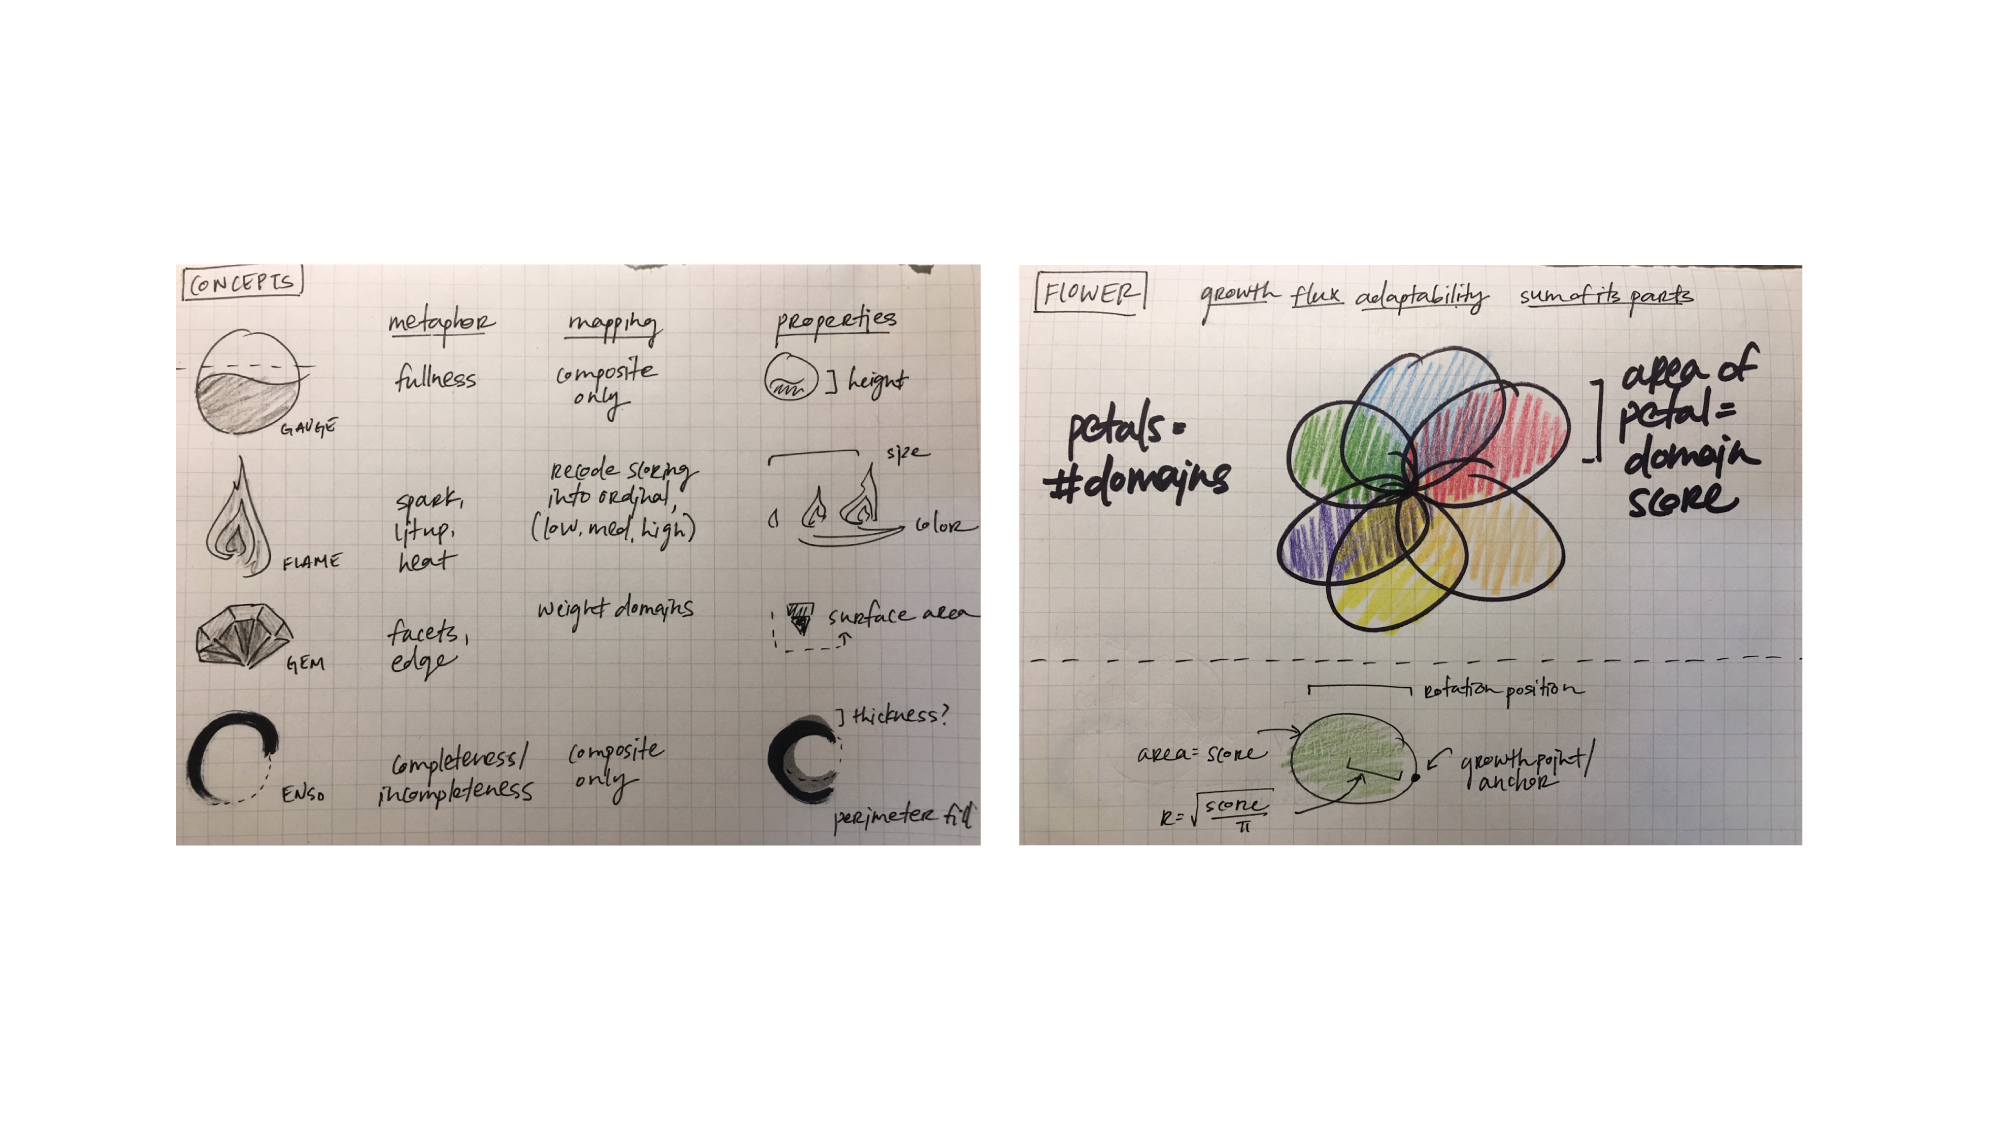 CONCEPTS
metaphor mapping properties
GAUGE
fullness
composite
only
height
FLAME
spark,
litup,
heat
recode scoring
into ordinal,
(low, med, high)
size
color
GEM
facets,
edge
weight domains
surface area
ENSO
completeness/
incompleteness
composite
only
thickness?
perimeter fill
FLOWER
growth flux adaptability sum of its parts
petals =
#domains
area of
petal =
domain
score
rotation position
area = score
growth point/
anchor
R = √score/π